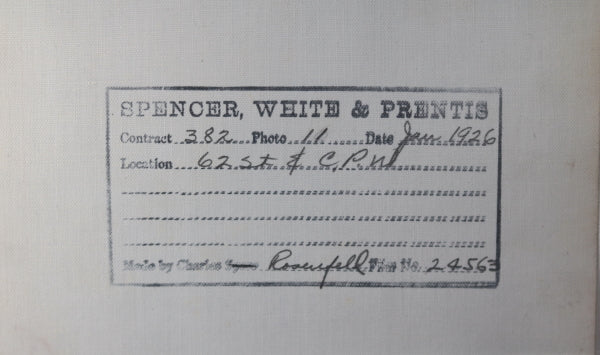 SPENCER, WHITE & PRENTIS
Contract 382 Photo 11 Date Jan 1926
Location 62 St & C.P.W
Made by Charles Rosenfeld Film No. 24563